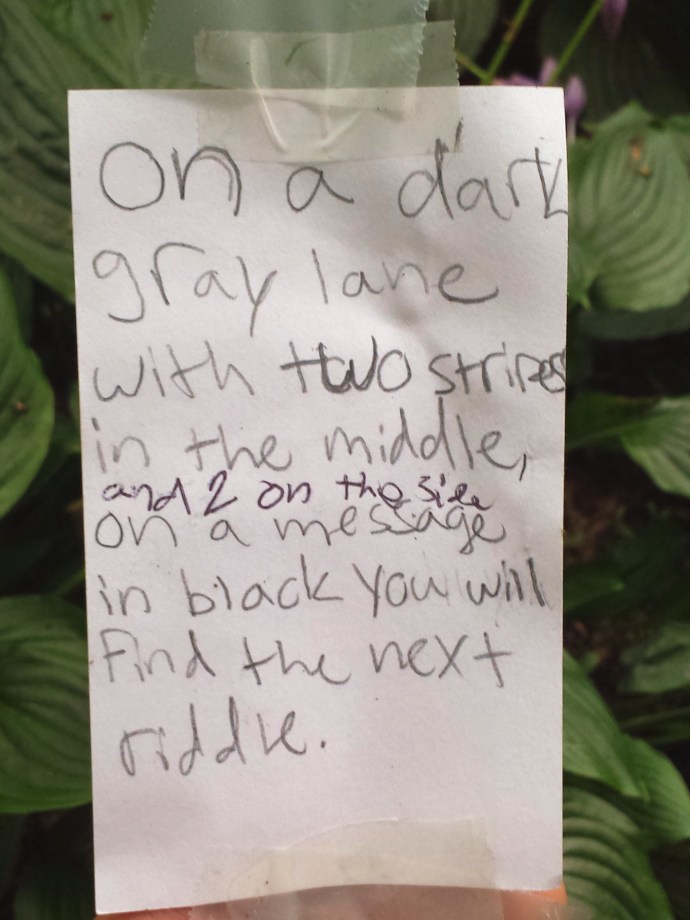 On a dark
gray lane
with two stripes
in the middle,
and 2 on the side
on a message
in black you will
Find the next
riddle.